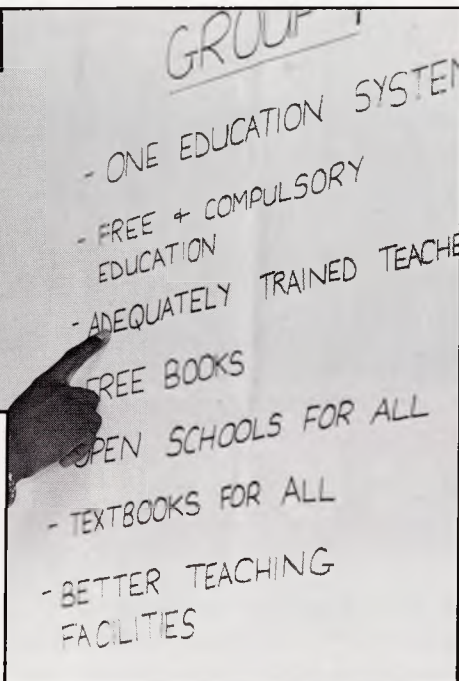 GROUP
- ONE EDUCATION SYSTEM
- FREE + COMPULSORY
EDUCATION
- ADEQUATELY TRAINED TEACHE
FREE BOOKS
OPEN SCHOOLS FOR ALL
- TEXTBOOKS FOR ALL
- BETTER TEACHING
FACILITIES